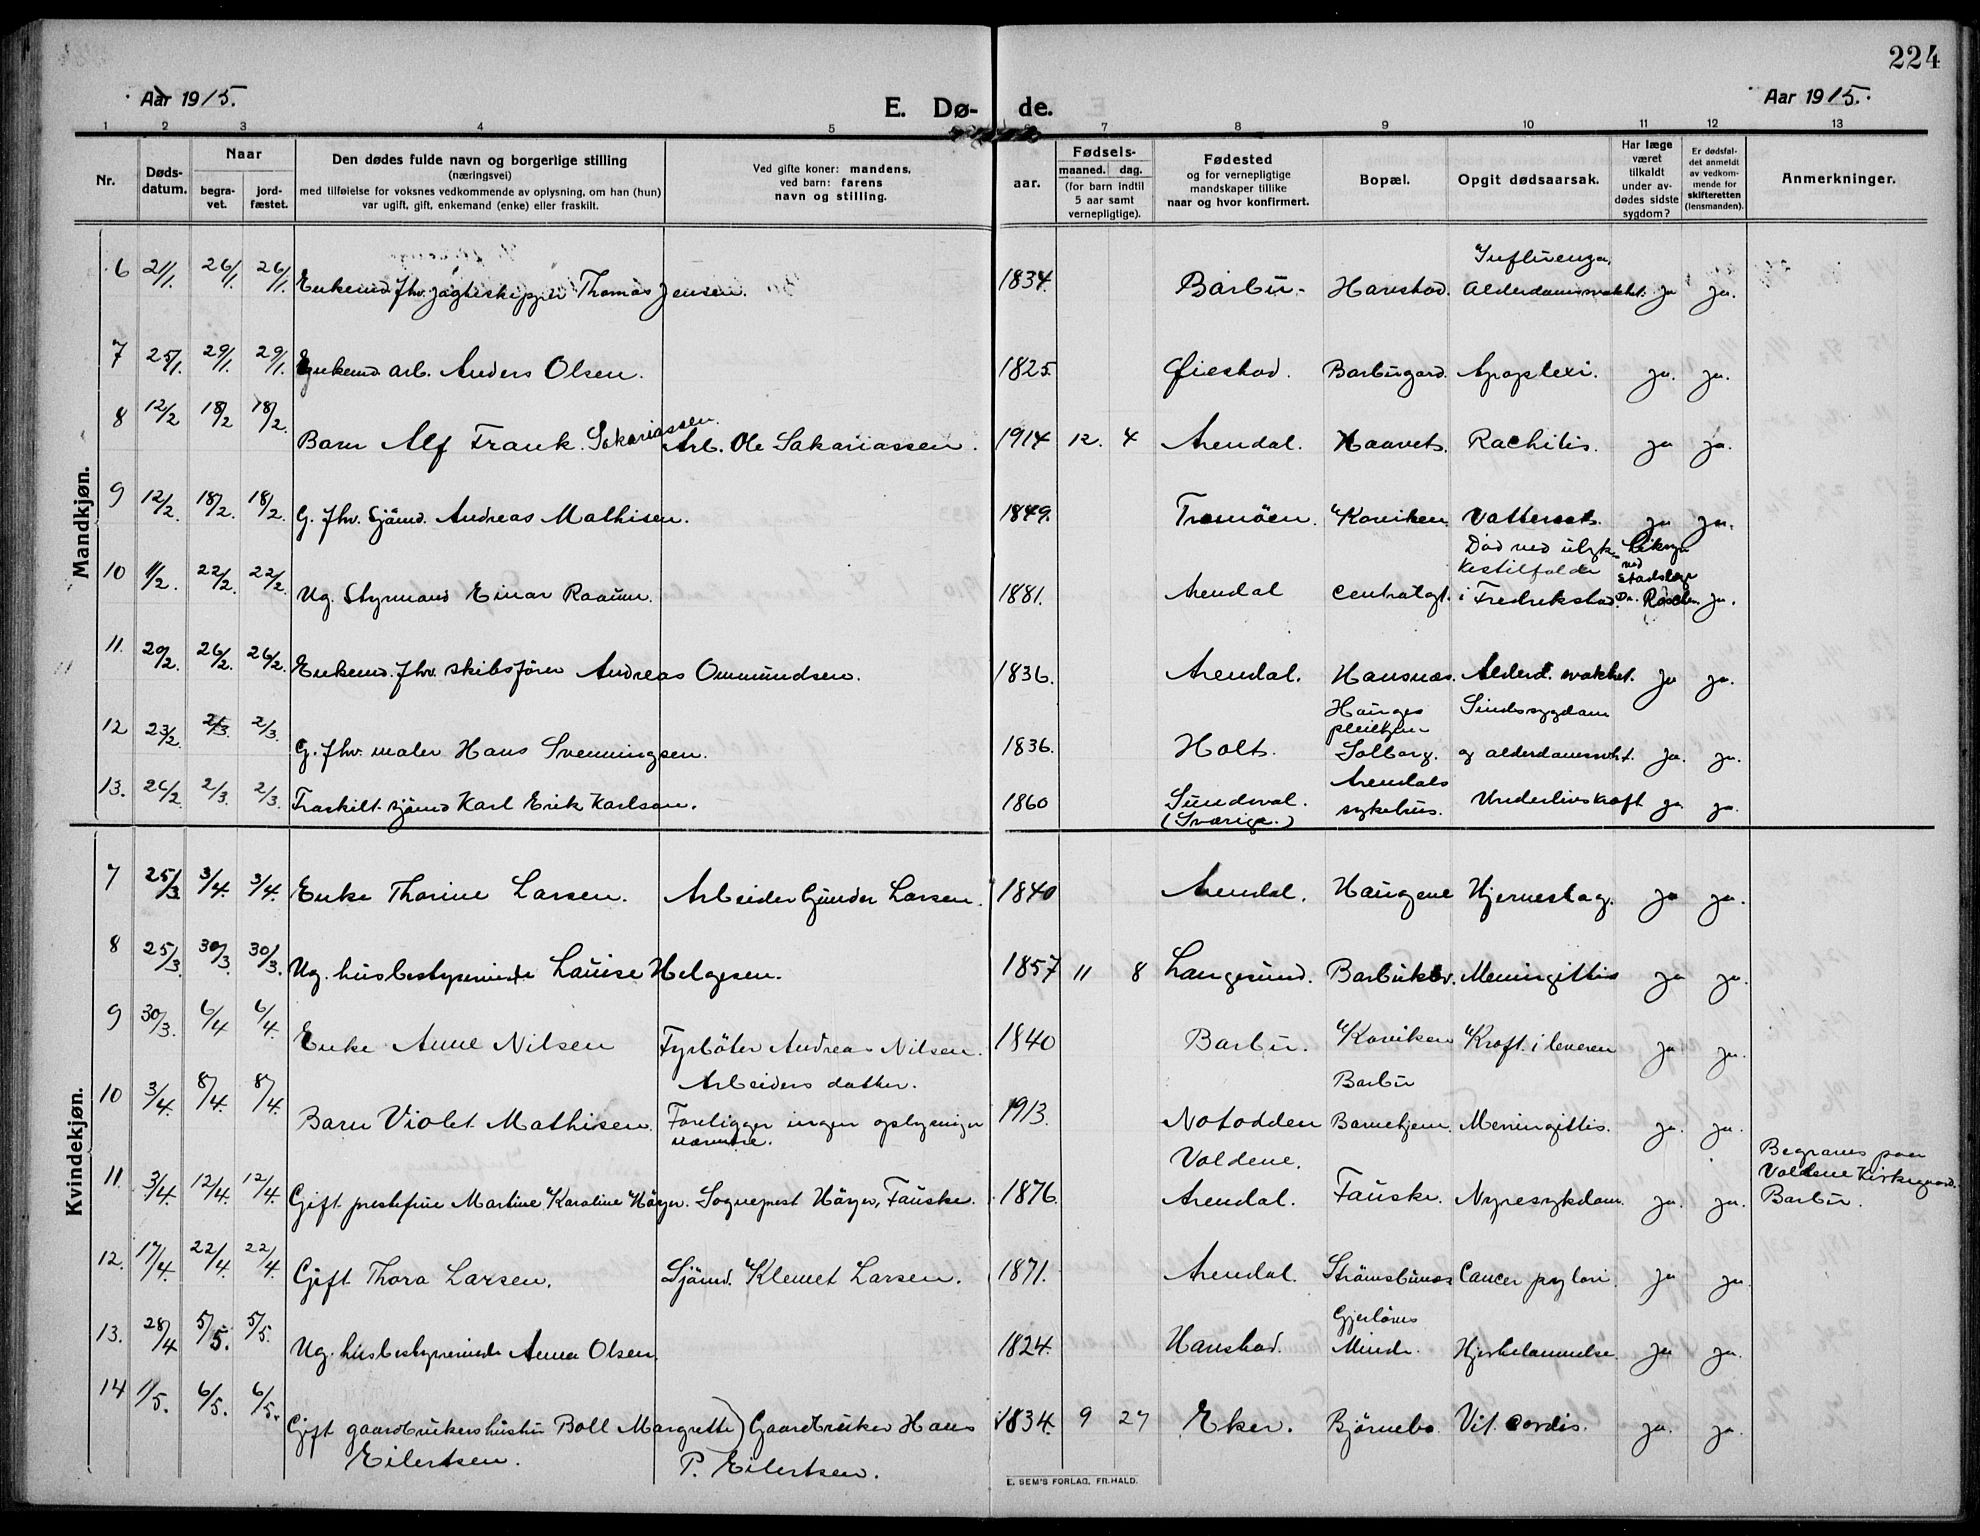 224
Aar 1915.
E. Dø- de.
Aar 1915.
1 2 3 4 5 6 7 8 9 10 11 12 13
Nr.
Døds-
datum.
Naar
begra-
vet.
jord-
fæstet.
Den dødes fulde navn og borgerlige stilling
(næringsvei)
med tilføielse for voksnes vedkommende av oplysning, om han (hun)
var ugift, gift, enkemand (enke) eller fraskilt.
Ved gifte koner: mandens,
ved barn: farens
navn og stilling.
aar.
Fødsels-
maaned. dag.
(for barn indtil
5 aar samt
vernepligtige).
Fødested
og for vernepligtige
mandskaper tillike
naar og hvor konfirmert.
Bopæl.
Opgit dødsaarsak.
Har læge
været
tilkaldt
under av-
dødes sidste
sygdom?
Er dødsfal-
det anmeldt
av vedkom-
mende for
skifteretten
(lensmanden).
Anmerkninger.
Mandkjøn.
Influenza,
6 21/1. 26/1 26/1. Enkemd. fhv. jagteskipper Thomas Jensen. 1834. Barbu. Harestad. Alderdomssvakhet. ja ja.
7 25/1. 29/1. 29/1. Enkemd arb. Anders Olsen. 1825. Øiestad. Barbugard. Apoplexi. ja. ja.
8 12/2 18/2 18/2. Barn Alf Frank Sakariassen. Arb. Ole Sakariassen. 1914 12. 4 Arendal. Haavet. Rachitis. ja ja.
9 12/2. 18/2. 18/2. G. fhv. Sjømd. Andreas Mathisen. 1849. Tromöen. Koviken. Vattersot. ja ja.
Död ved ulyk-
kestilfælde
Liksyn
ved
Stadslæge
10 11/2. 22/2. 22/2. Ug. Styrmand Einar Raaum. 1881. Arendal Centralgt. i Fredrikstad. Dr. ja.
11. 20/2. 26/2. 26/2. Enkemd. fhv. skibsfører Andreas Ommundsen. 1836. Arendal. Hansnæs. Alderd. svakhet. ja ja.
Hauges
pleiehjem
Sindssygdom
12 23/2. 2/3. 2/3. G. fhv. maler Hans Svenningsen. 1836. Holt. Solborg. og alderdomssvkt. ja. ja.
Arendals
13. 26/2 2/3. 2/3. Fraskilt sjømd Karl Erik Karlson. 1860 Sundsval. sykehus. Underlivskræft ja ja.
(Sværige.)
Kvindekjøn.
7 25/3 3/4. 3/4. Enke Thorine Larsen. Arbeider Gunder Larsen. 1840 Arendal. Haugene Hjerneslag. ja ja.
8 25/3. 30/3. 30/3. Ug. husbestyrerinde Lauise Helgesen. 1857 11 8 Langesund. Barbukbr. Meningittis ja ja.
9 30/3. 6/4 6/4. Enke Anne Nilsen Fyrböter Andreas Nilsen. 1840 Barbu. Koviken Kræft i leveren ja ja.
Arbeiders datter. Barbu
10 3/4. 8/4. 8/4. Barn Violet Mathisen. Foreligger ingen oplysninger 1913. Notodden Barnehjem. Meningittis. ja. ja.
nærmere.
Voldene,
Begraves paa
Voldene Kirkegaard.
11. 3/4. 12/4. 12/4. Gift prestefrue Martine Karoline Höyer. Sogneprest Höyer, Fauske. 1876. Arendal. Fauske. Nyresykdom ja. ja. Barbu.
12. 17/4. 22/4. 22/4. Gift Thora Larsen. Sjömd. Klemet Larsen. 1871. Arendal. Strömsbunes Cancer pylori. ja ja.
Gjerlöws
13. 28/4 5/5. 5/5. Ug. husbestyrerinde Anna Olsen. 1824. Harestad. Minde. Hjertelammelse. ja ja.
14 1/5. 6/5. 6/5. Gift gaardbrukers hustru Boll Margrette) Gaardbruker Hans 1834. 9 27 Eker. Bjørnebo. Vit. cordis. ja. ja.
Eilertsen. P. Eilertsen.
E. SEM'S FORLAG, FR.HALD.